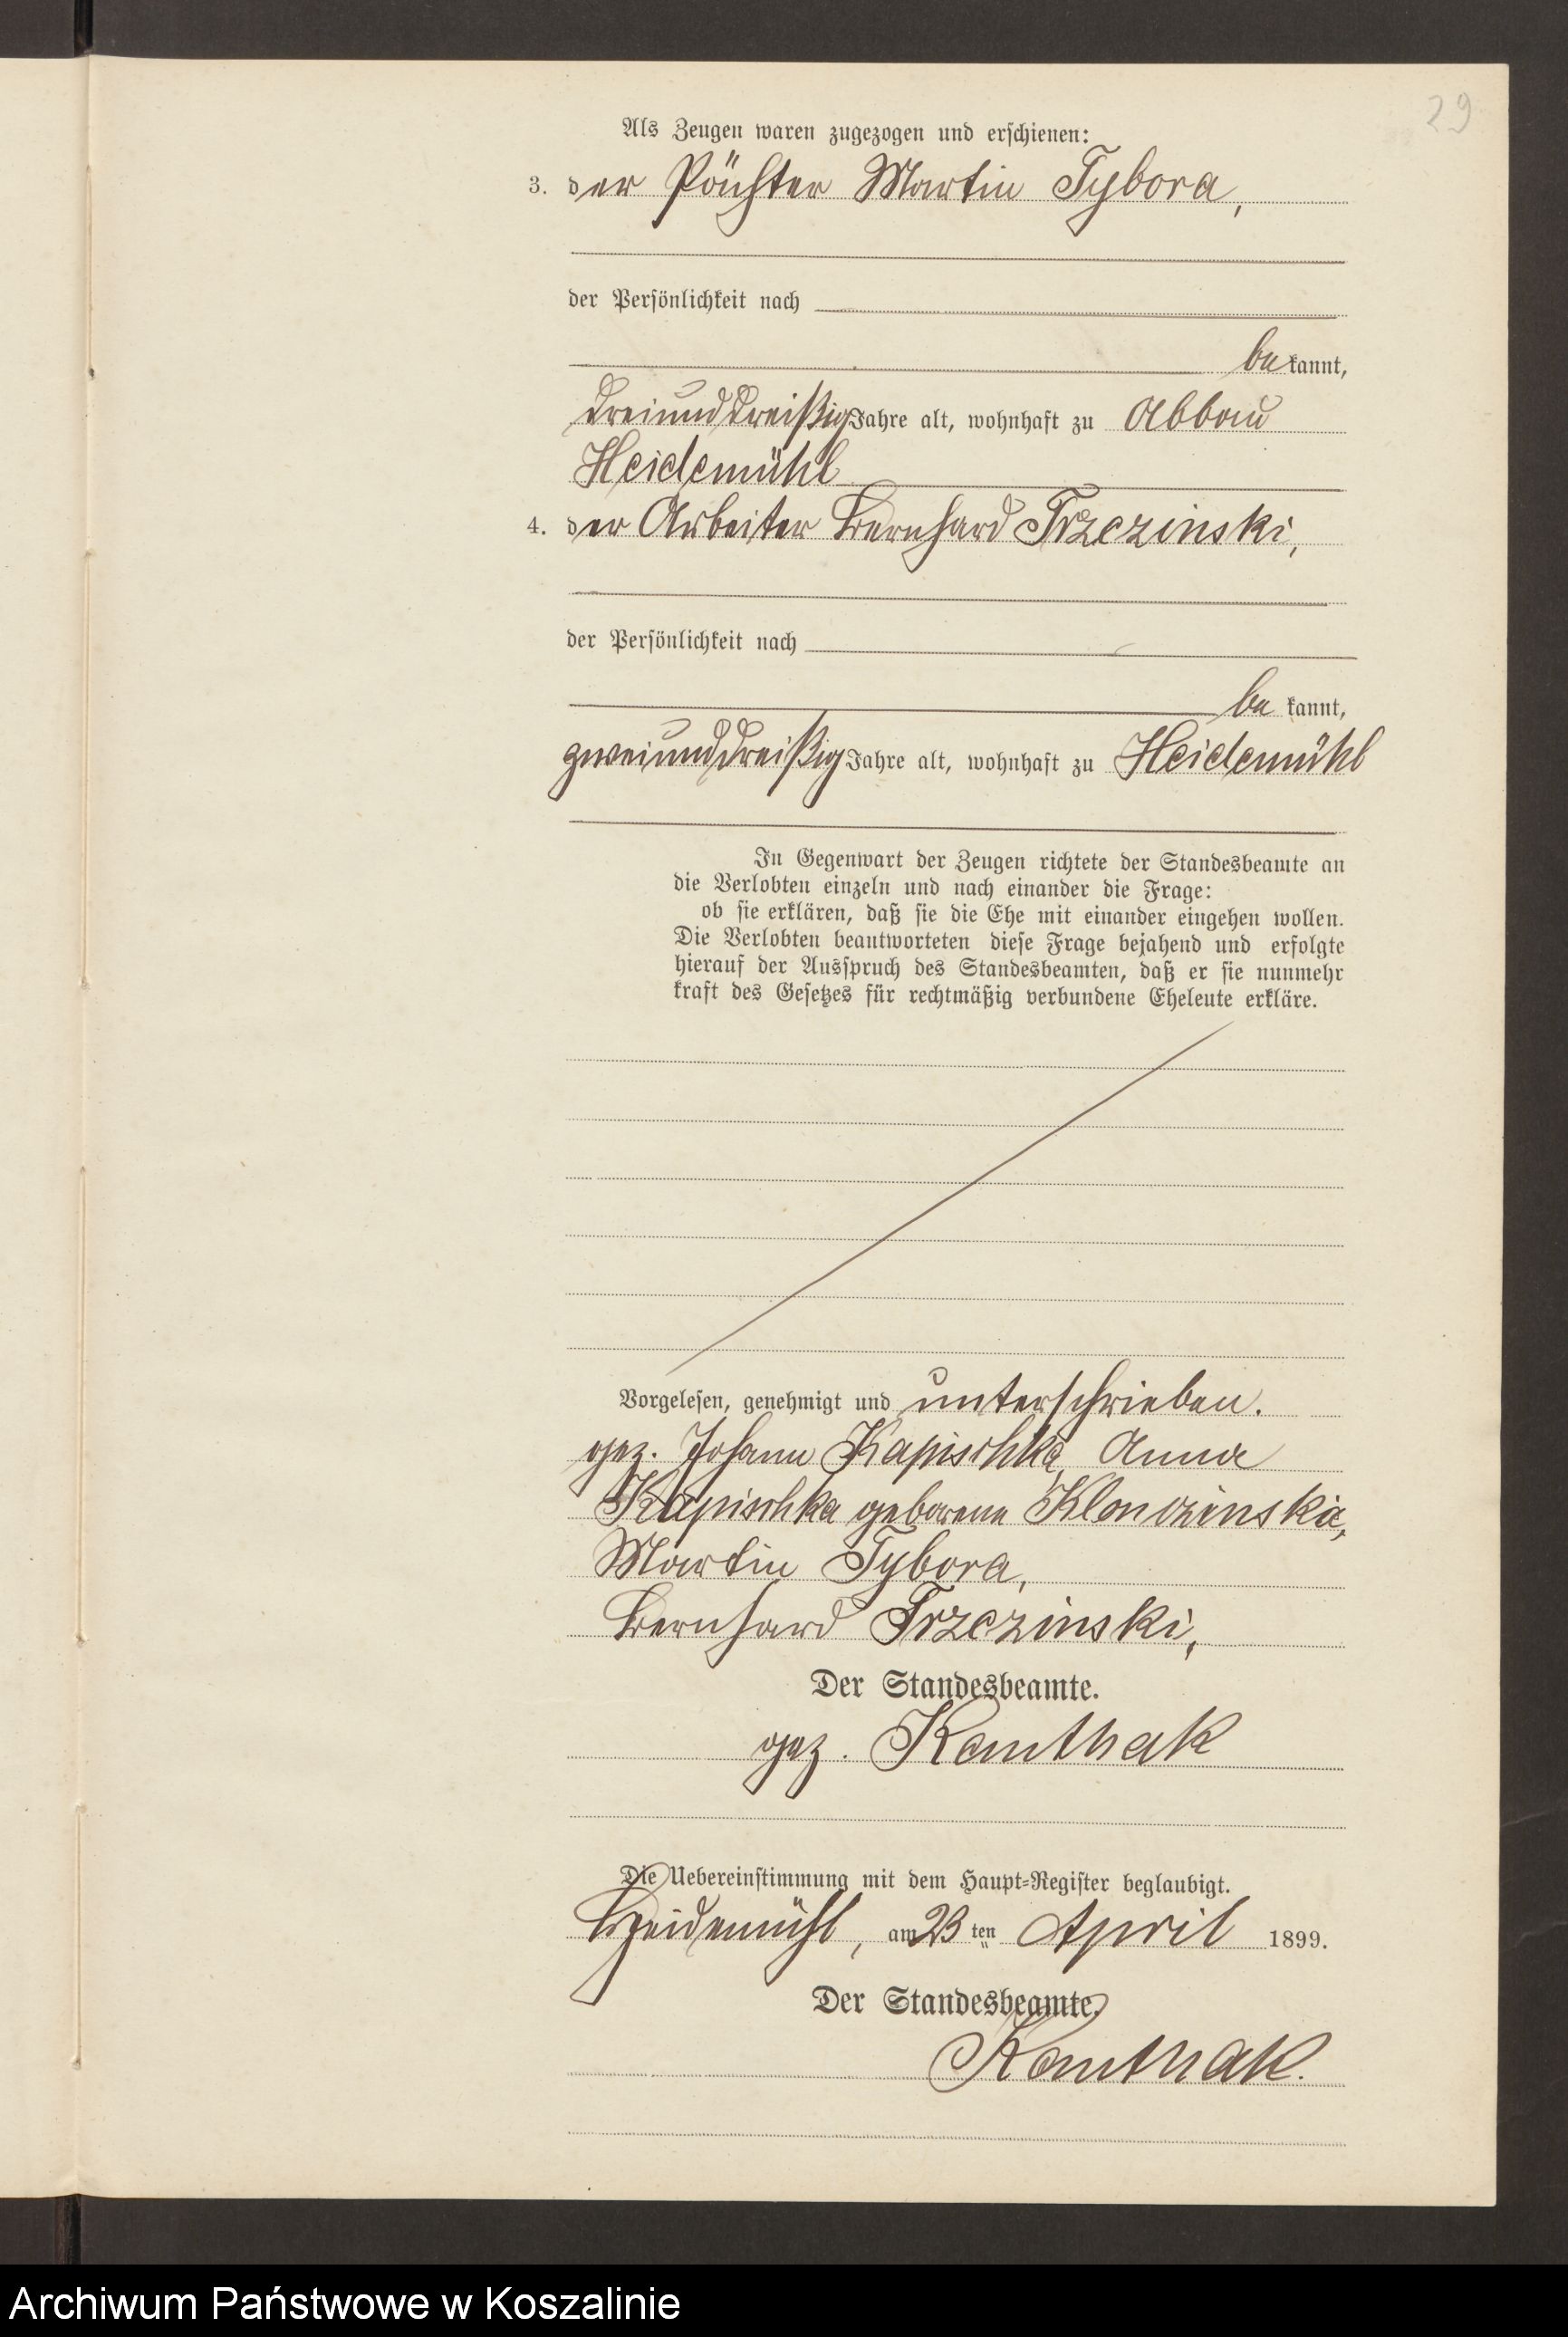 29
Als Zeugen waren zugezogen und erschienen:
3. der Pächter Martin Tybora,
der Persönlichkeit nach
be kannt,
dreiunddreißig Jahre alt, wohnhaft zu Abbau
Heidemühl
4. der Arbeiter Bernhard Trzczinski,
der Persönlichkeit nach
be kannt,
zweiunddreißig Jahre alt, wohnhaft zu Heidemühl
In Gegenwart der Zeugen richtete der Standesbeamte an
die Verlobten einzeln und nach einander die Frage:
ob sie erklären, daß sie die Ehe mit einander eingehen wollen.
Die Verlobten beantworteten diese Frage bejahend und erfolgte
hierauf der Ausspruch des Standesbeamten, daß er sie nunmehr
kraft des Gesetzes für rechtmäßig verbundene Eheleute erkläre.
Vorgelesen, genehmigt und unterschrieben.
gez. Johann Kapischka, Anna
Kapischka geborene
Martin Tybora,
Bernhard Trzczinski,
Der Standesbeamte.
gez. Kanthak
Die Uebereinstimmung mit dem Haupt-Register beglaubigt.
Heidemühl, am 23 ten April 1899.
Der Standesbeamte.
Kanthak.
Archiwum Państwowe w Koszalinie